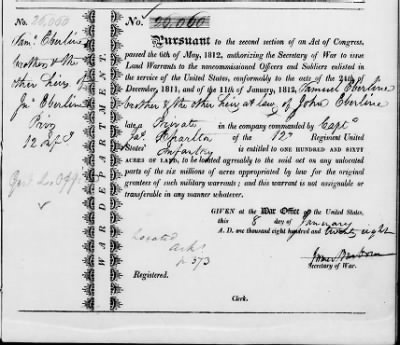 No. 26,060
Saml. Eberline
brother & the
other heirs of
Jno. Eberline
Priv.
12 Inf.
WAR DEPARTMENT.
No. 26,060
Pursuant to the second section of an Act of Congress,
passed the 6th of May, 1812, authorizing the Secretary of War to issue
Land Warrants to the noncommissioned Officers and Soldiers enlisted in
the service of the United States, conformably to the acts of the 24th
December, 1811, and of the 11th of January, 1812, Samuel Eberline
brother & the other heirs at law of John Eberline
late a Private in the company commanded by Capt.
Jas. of the 12th Regiment United
States' Infantry
is entitled to ONE HUNDRED AND SIXTY
ACRES OF LAND, to be located agreeably to the said act on any unlocated
parts of the six millions of acres appropriated by law for the original
grantees of such military warrants; and this warrant is not assignable or
transferable in any manner whatever.
GIVEN at the War Office of the United States,
this 8 day of January
A. D. one thousand eight hundred and twenty eight
Located
Arks
p 573
James Barbour
Secretary of War.
Registered.
Clerk.